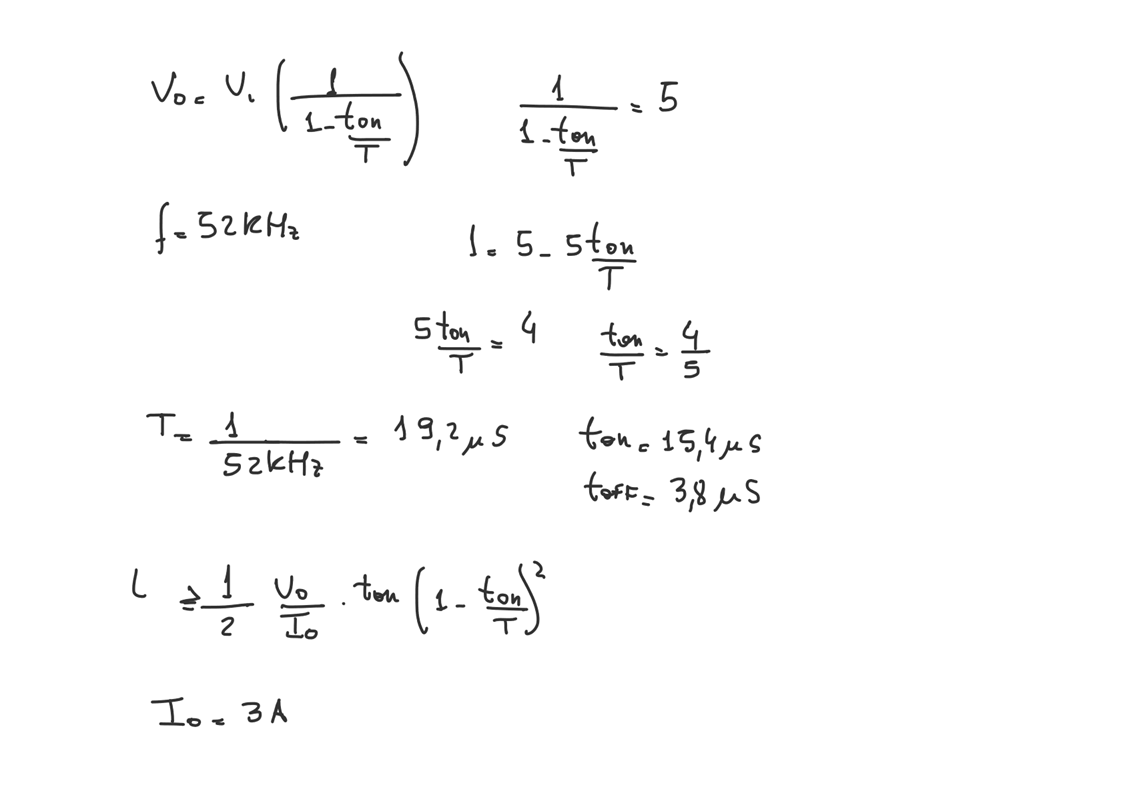 Vo = Vi (1 / (1 - ton/T))    1 / (1 - ton/T) = 5
f = 52kHz    1 = 5 - 5 ton/T
5 ton/T = 4    ton/T = 4/5
T = 1/52kHz = 19,2 μS    ton = 15,4 μS
toFF = 3,8 μS
L ≥ 1/2 Vo/Io · ton (1 - ton/T)²
Io = 3A